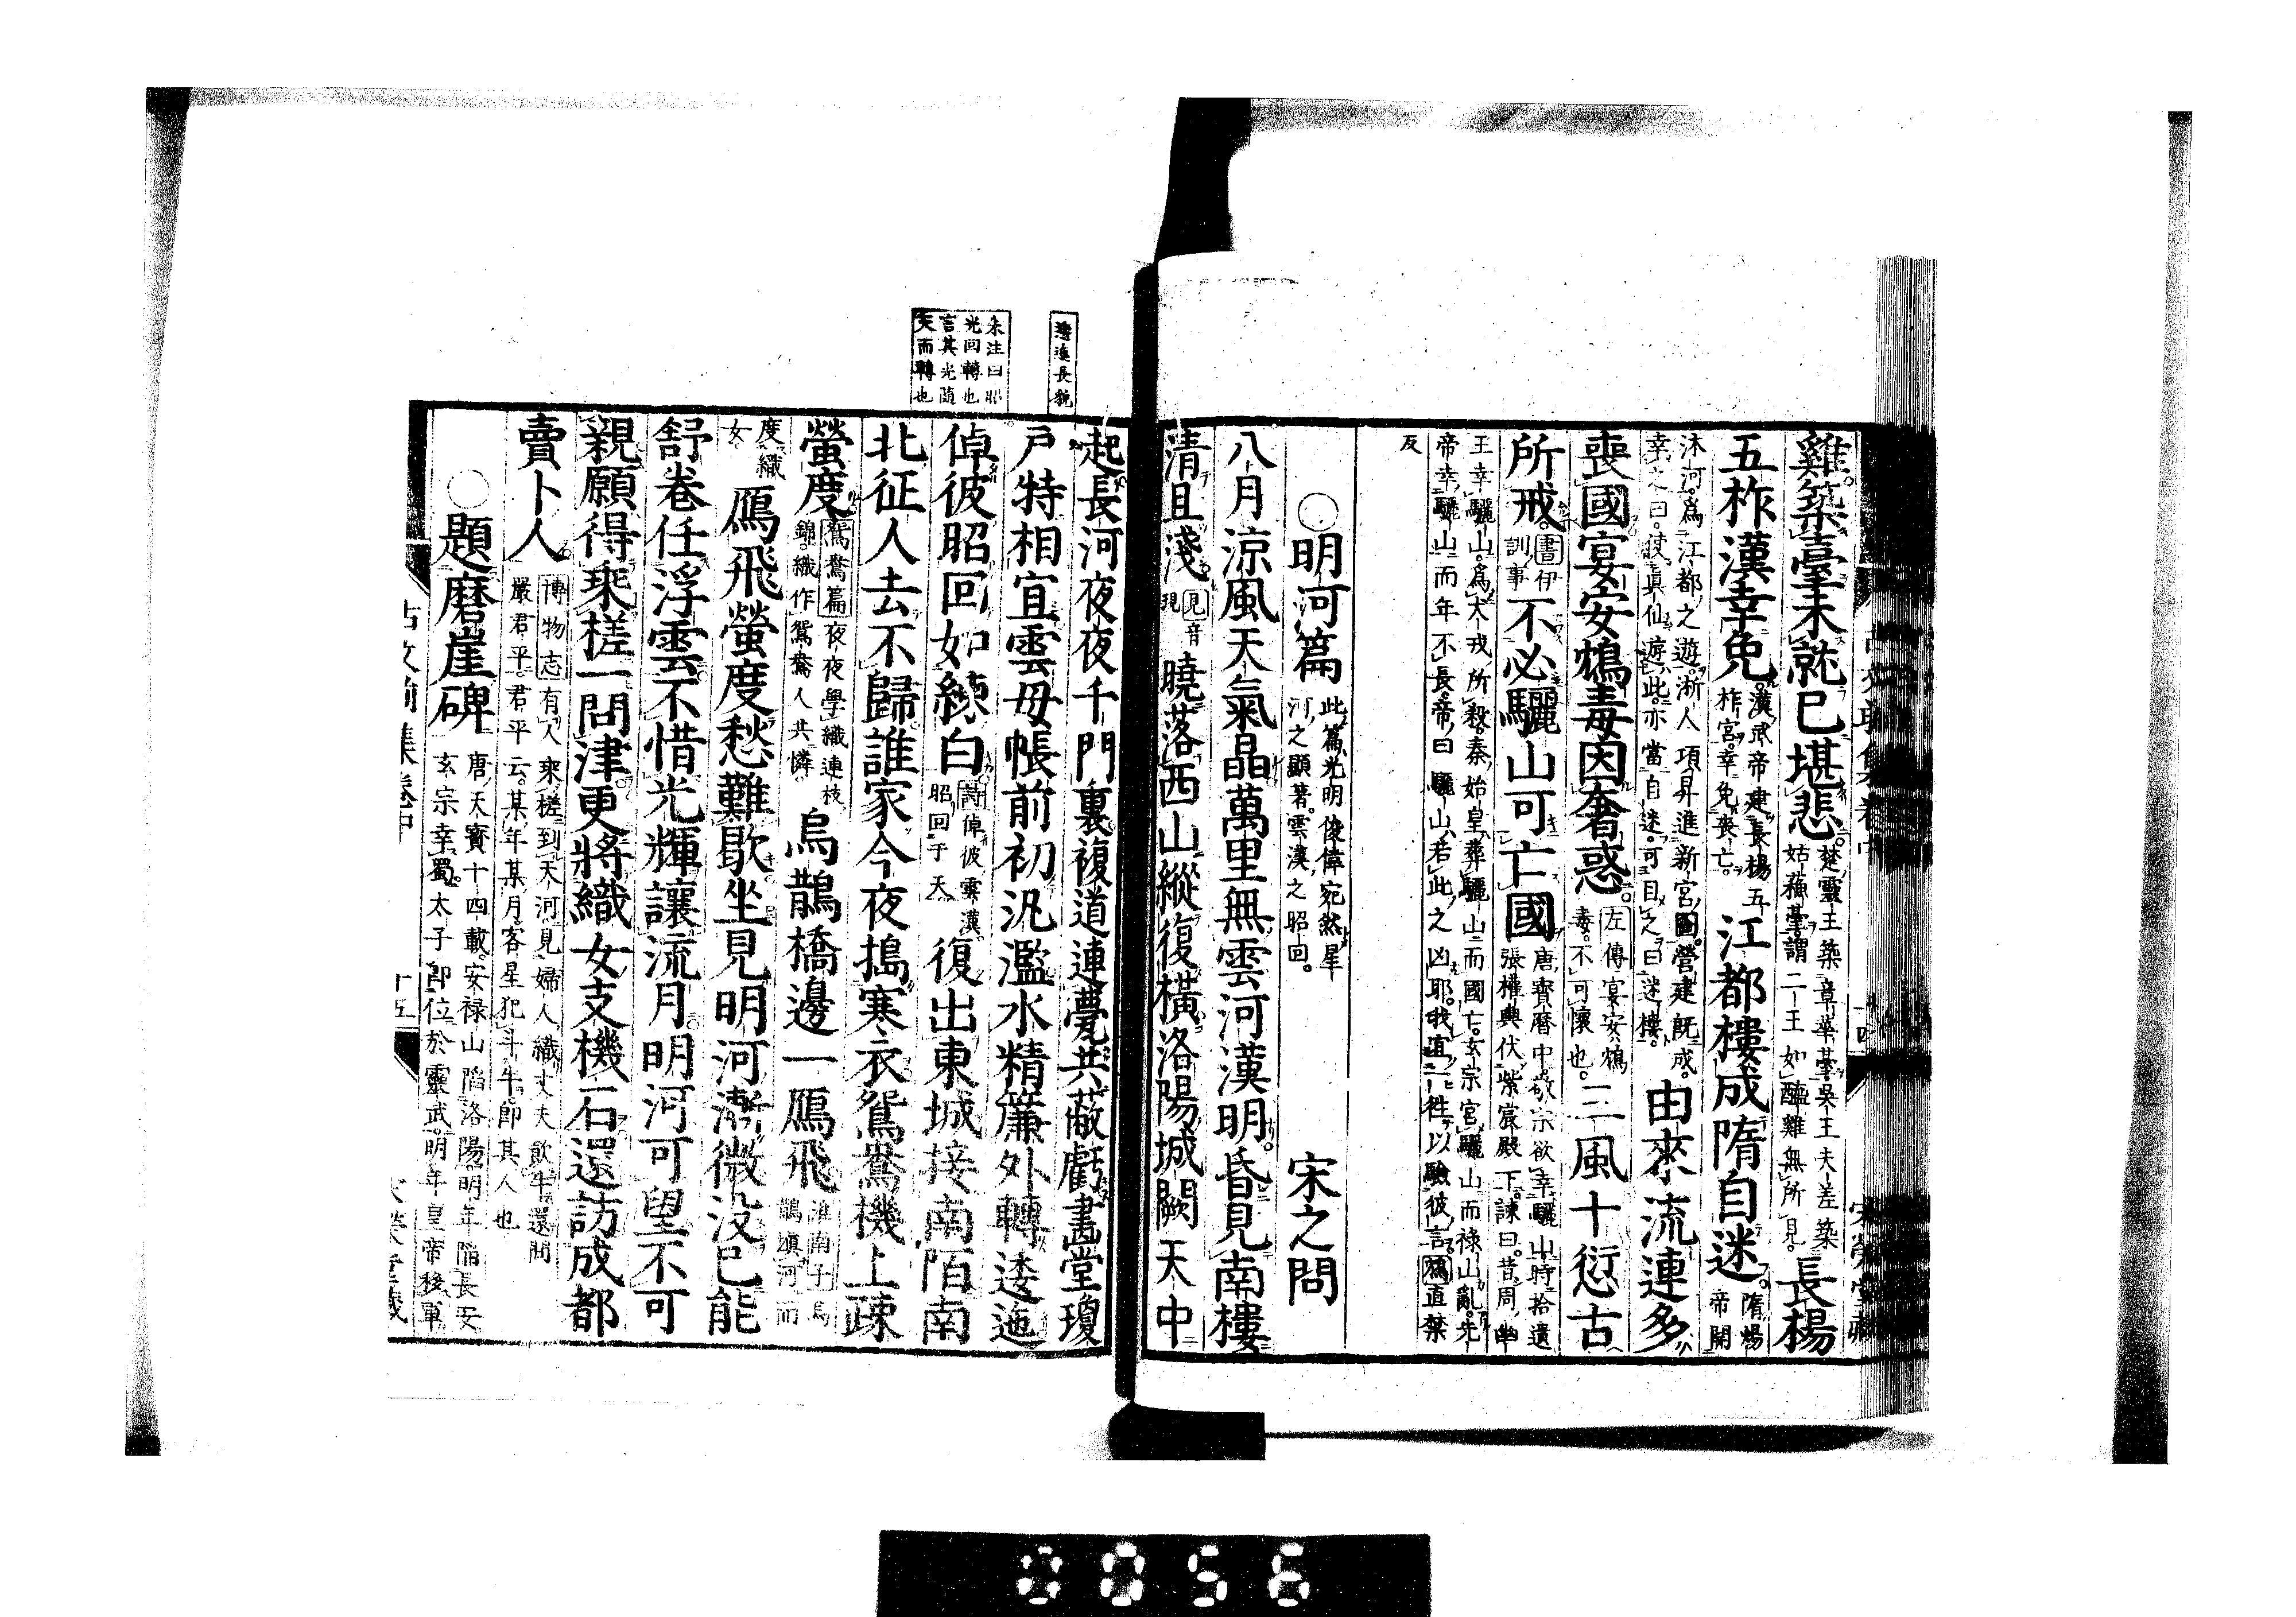 雞築臺未就已堪悲楚靈王築章華臺吳王夫差築姑蘇臺謂二王如醯雞無所見長楊
五柞漢幸免漢武帝建長楊五柞宮幸免喪亡江都樓成隋自迷隋煬帝開
沐河爲江都之遊浙人項昇進新宮圖營建既成幸之曰使真仙遊此亦當自迷可目之曰迷樓由來流連多
喪國宴安鴆毒因奢惑左傳宴安鴆毒不可懷也三風十愆古
所戒書伊訓事不必驪山可亡國唐寶曆中敬宗欲幸驪山時拾遺張權輿伏紫宸殿下諫曰昔周幽
王幸驪山爲犬戎所殺秦始皇葬驪山而國亡玄宗宮驪山而祿山亂先帝幸驪山而年不長帝曰驪山若此之凶耶我宜一往以驗彼言鴆直禁
反
○明河篇此篇光明俊偉宛然星河之顯著雲漢之昭回宋之問
八月涼風天氣晶萬里無雲河漢明昏見南樓
清且淺見音現曉落西山縱復橫洛陽城闕天中
逶迤長貌
朱注曰昭
光回轉也
言其光隨
天而轉也
起長河夜夜千門裏複道連甍共蔽虧畫堂瓊
戶特相宜雲母帳前初汎濫水精簾外轉逶迤
倬彼昭回如練白詩倬彼雲漢昭回于天復出東城接南陌南
北征人去不歸誰家今夜擣寒衣鴛鴦機上疎
螢度鴛鴦篇夜夜學織連枝錦織作鴛鴦人共憐烏鵲橋邊一鴈飛淮南子烏鵲塡河而
度織女鴈飛螢度愁難歇坐見明河漸微沒已能
舒卷任浮雲不惜光輝讓流月明河可望不可
親願得乘槎一問津更將織女支機石還訪成都
賣卜人博物志有人乘槎到天河見婦人織丈夫飲牛還問嚴君平君平云某年某月客星犯斗牛即其人也
○題磨崖碑唐天寶十四載安祿山陷洛陽明年陷長安玄宗幸蜀太子即位於靈武明年皇帝移軍
古文前集卷中 十五
0056